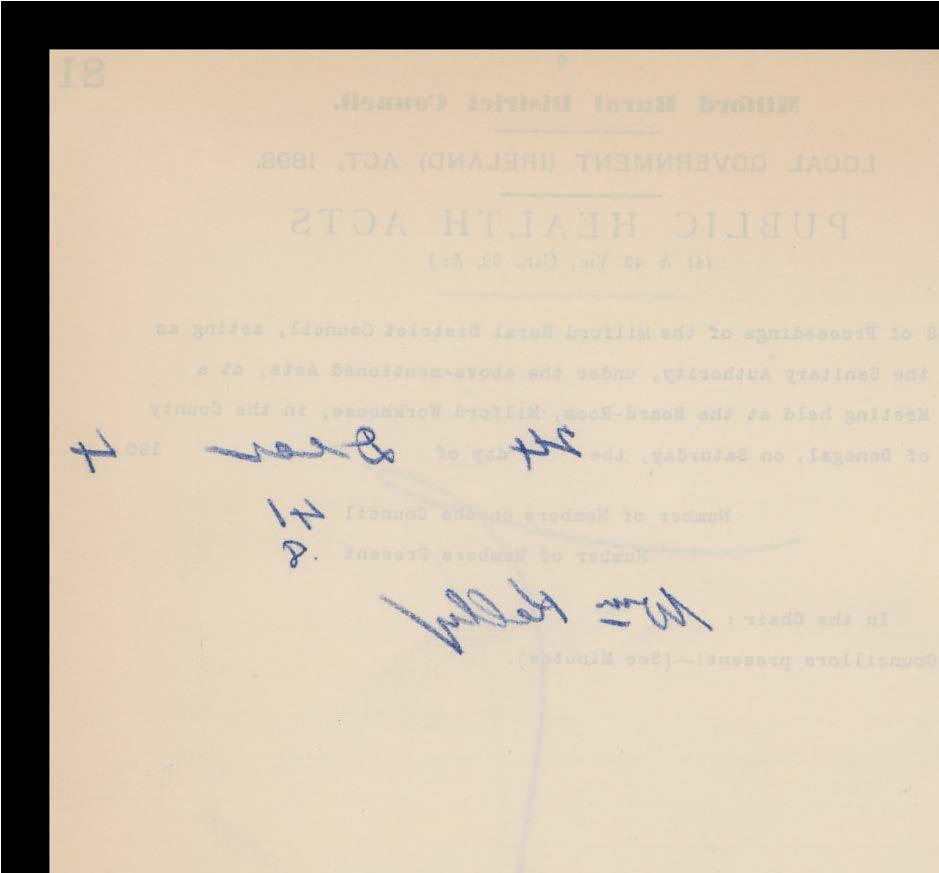 81
Milford Rural District Council.
LOCAL GOVERNMENT (IRELAND) ACT, 1898.
PUBLIC HEALTH ACTS
(41 & 42 Vic., Cap. 52, &c.)
s of Proceedings of the Milford Rural District Council, acting as
the Sanitary Authority, under the above-mentioned Acts, at a
Meeting held at the Board-Room, Milford Workhouse, in the County
of Donegal, on Saturday, the 24 day of 190 4
Number of Members on the Council 41
Number of Members Present 8.
In the Chair: Wm Kelly
Councillors present:—(See Minutes).